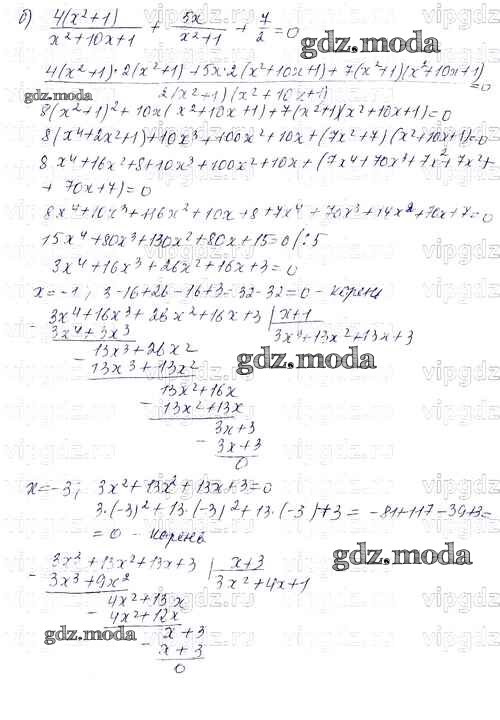 б) 4(x²+1)/(x²+10x+1) + 5x/(x²+1) + 7/2 = 0
(4(x²+1)·2(x²+1)+5x·2(x²+10x+1)+7(x²+1)(x²+10x+1))/(2(x²+1)(x²+10x+1)) = 0
8(x²+1)²+10x(x²+10x+1)+7(x²+1)(x²+10x+1)=0
8(x⁴+2x²+1)+10x³+100x²+10x+(7x²+7)(x²+10x+1)=0
8x⁴+16x²+8+10x³+100x²+10x+(7x⁴+70x³+7x²+7x²+
+70x+7)=0
8x⁴+10x³+116x²+10x+8+7x⁴+70x³+14x²+70x+7=0
15x⁴+80x³+130x²+80x+15=0 /:5
3x⁴+16x³+26x²+16x+3=0
x=-1; 3-16+26-16+3=32-32=0 - корень
- 3x⁴+16x³+26x²+16x+3 | x+1
3x⁴+3x³ 3x⁴+13x²+13x+3
- 13x³+26x²
13x³+13x²
gdz.moda
13x²+16x
- 13x²+13x
3x+3
gdz.moda
- 3x+3
0
x=-3; 3x²+13x²+13x+3=0
3·(-3)²+13·(-3)²+13·(-3)+3=-81+117-39+3=
=0 - корень
gdz.moda
- 3x³+13x²+13x+3 | x+3
3x³+9x² 3x²+4x+1
4x²+13x
- 4x²+12x
gdz.moda
x+3
- x+3
0
vipgdz.ru